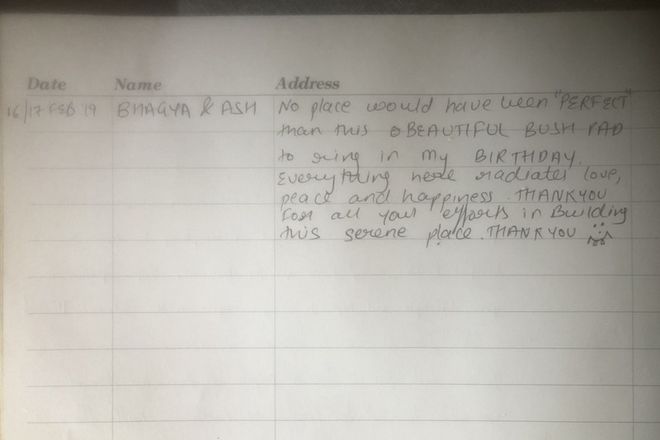 Date Name Address
16/17 FEB 19 BHAGYA & ASH No place would have been "PERFECT"
than this BEAUTIFUL BUSH PAD
to ring in my BIRTHDAY.
Everything here radiates love,
peace and happiness. THANKYOU
For all your efforts in Building
this serene place. THANKYOU